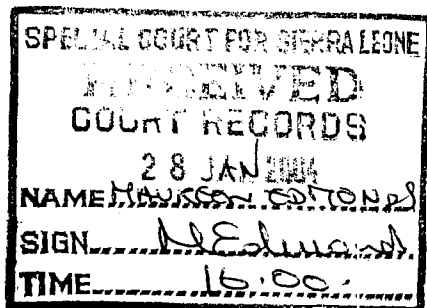 SPECIAL COURT FOR SIERRA LEONE
RECEIVED
COURT RECORDS
28 JAN 2004
NAME MAUREEN EDMONDS
SIGN MEdmonds
TIME 16.00